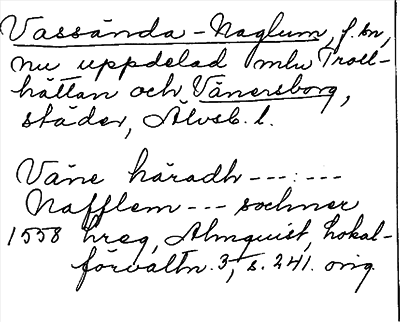 Vassända-Naglum, f. sn,
nu uppdelad mln Troll-
hättan och Vänersborg,
städer, Älvsb. l.
Väne häradh ---:---
Nafflem --- sochner
1558 hreg, Almquist, Lokal-
förvaltn. 3, s. 241. orig.